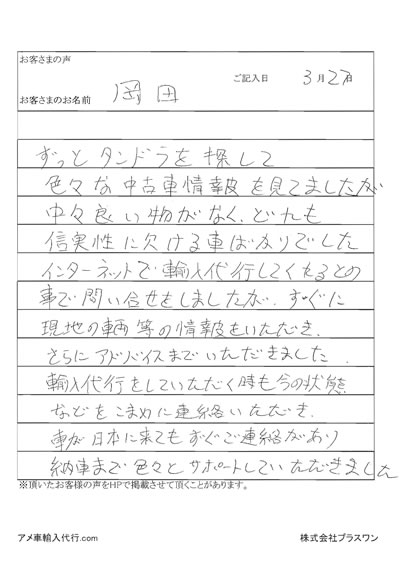 お客さまの声
ご記入日 3月27日
お客さまのお名前 岡田
ずっとタンドラを探して
色々な中古車情報を見てましたが
中々良い物がなく、どれも
信実性に欠ける車ばかりでした
インターネットで輸入代行してくれるとの
事で問い合せをしましたが、すぐに
現地の車輌等の情報をいただき、
さらにアドバイスまでいただきました
輸入代行をしていただく時も今の状態
などをこまめに連絡いただき、
車が日本に来てもすぐご連絡があり
納車まで色々とサポートしていただきました
※頂いたお客様の声をHPで掲載させて頂くことがあります。
アメ車輸入代行.com 株式会社プラスワン